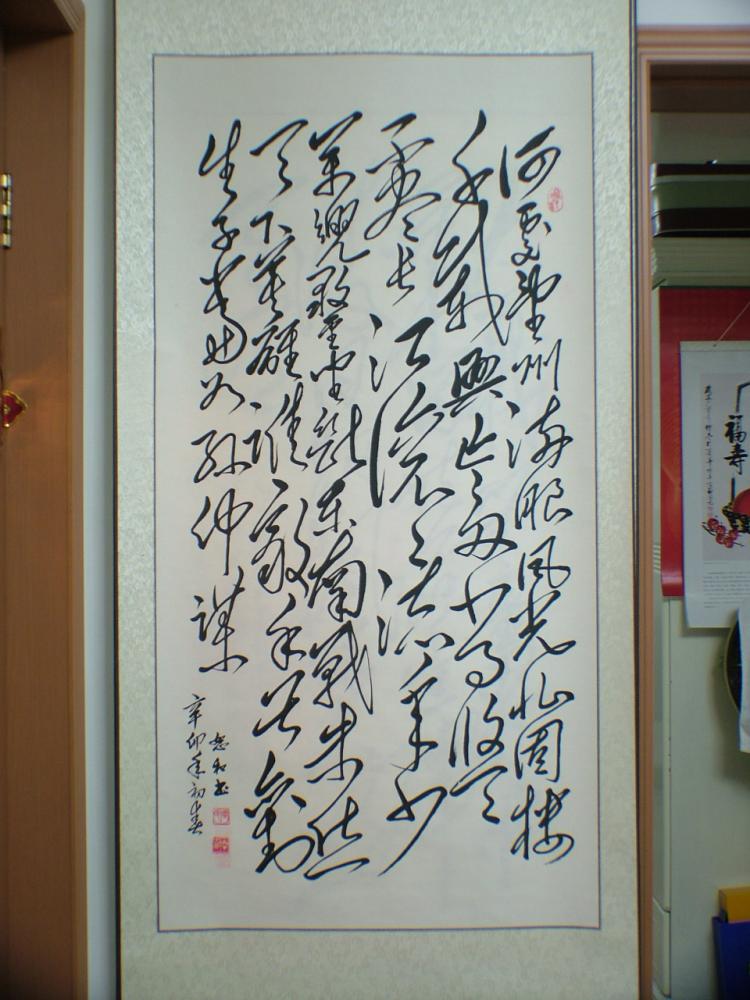 何处望州满眼风光北固楼
千载興亡多少事悠々
不尽长江滚々流年少
萬兜鍪坐断东南戰未休
天下英雄谁敵手曹劉
生子當如孙仲谋
辛卯年初春
和书
福寿